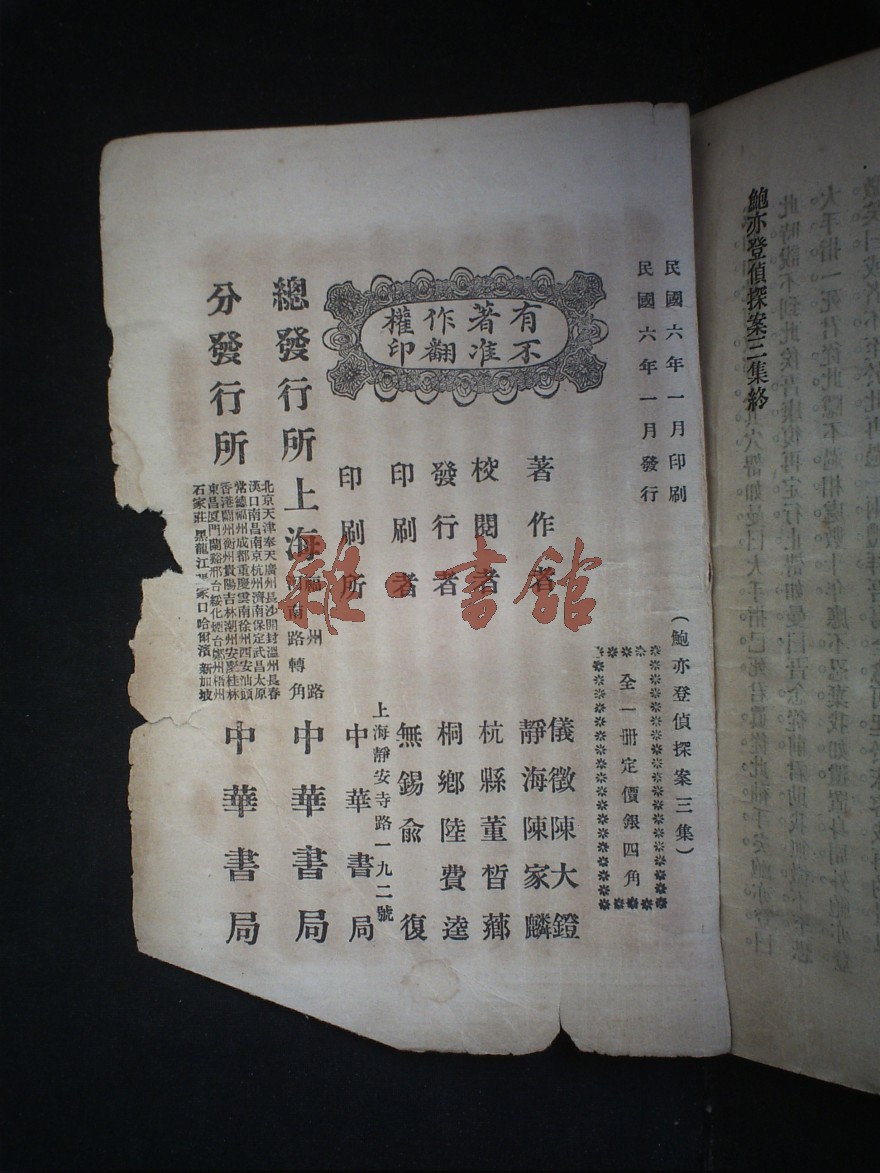 鮑亦登偵探案三集終
民國六年一月印刷
民國六年一月發行
(鮑亦登偵探案三集)
全一册定價銀四角
有不
著准
作翻
權印
著作者
儀徵陳大鐙
靜海陳家麟
校閱者
杭縣董晳薌
發行者
桐鄉陸費逵
印刷者
無錫俞復
印刷所
上海靜安寺路一九二號
中華書局
總發行所
上海
福州路
河南路轉角
中華書局
分發行所
北京天津奉天廣州長沙開封溫州長春
漢口南昌南京杭州濟南保定武昌太原
常德福州成都重慶雲南徐州西安汕頭
香港蘭州衡州貴陽吉林潮州安慶桂林
東昌厦門蘭谿邢台綏化煙台鄭州梧州
石家莊 黑龍江 家口 哈爾濱 新加坡
中華書局
雜·書館